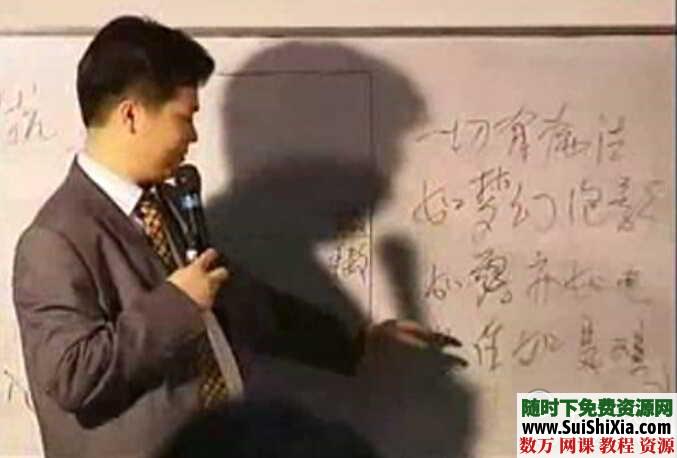 一切有為法
如梦幻泡影
如露亦如电
作如是觀
随时下免费资源网
www.SuiShiXia.com
数万 网课 教程 资源